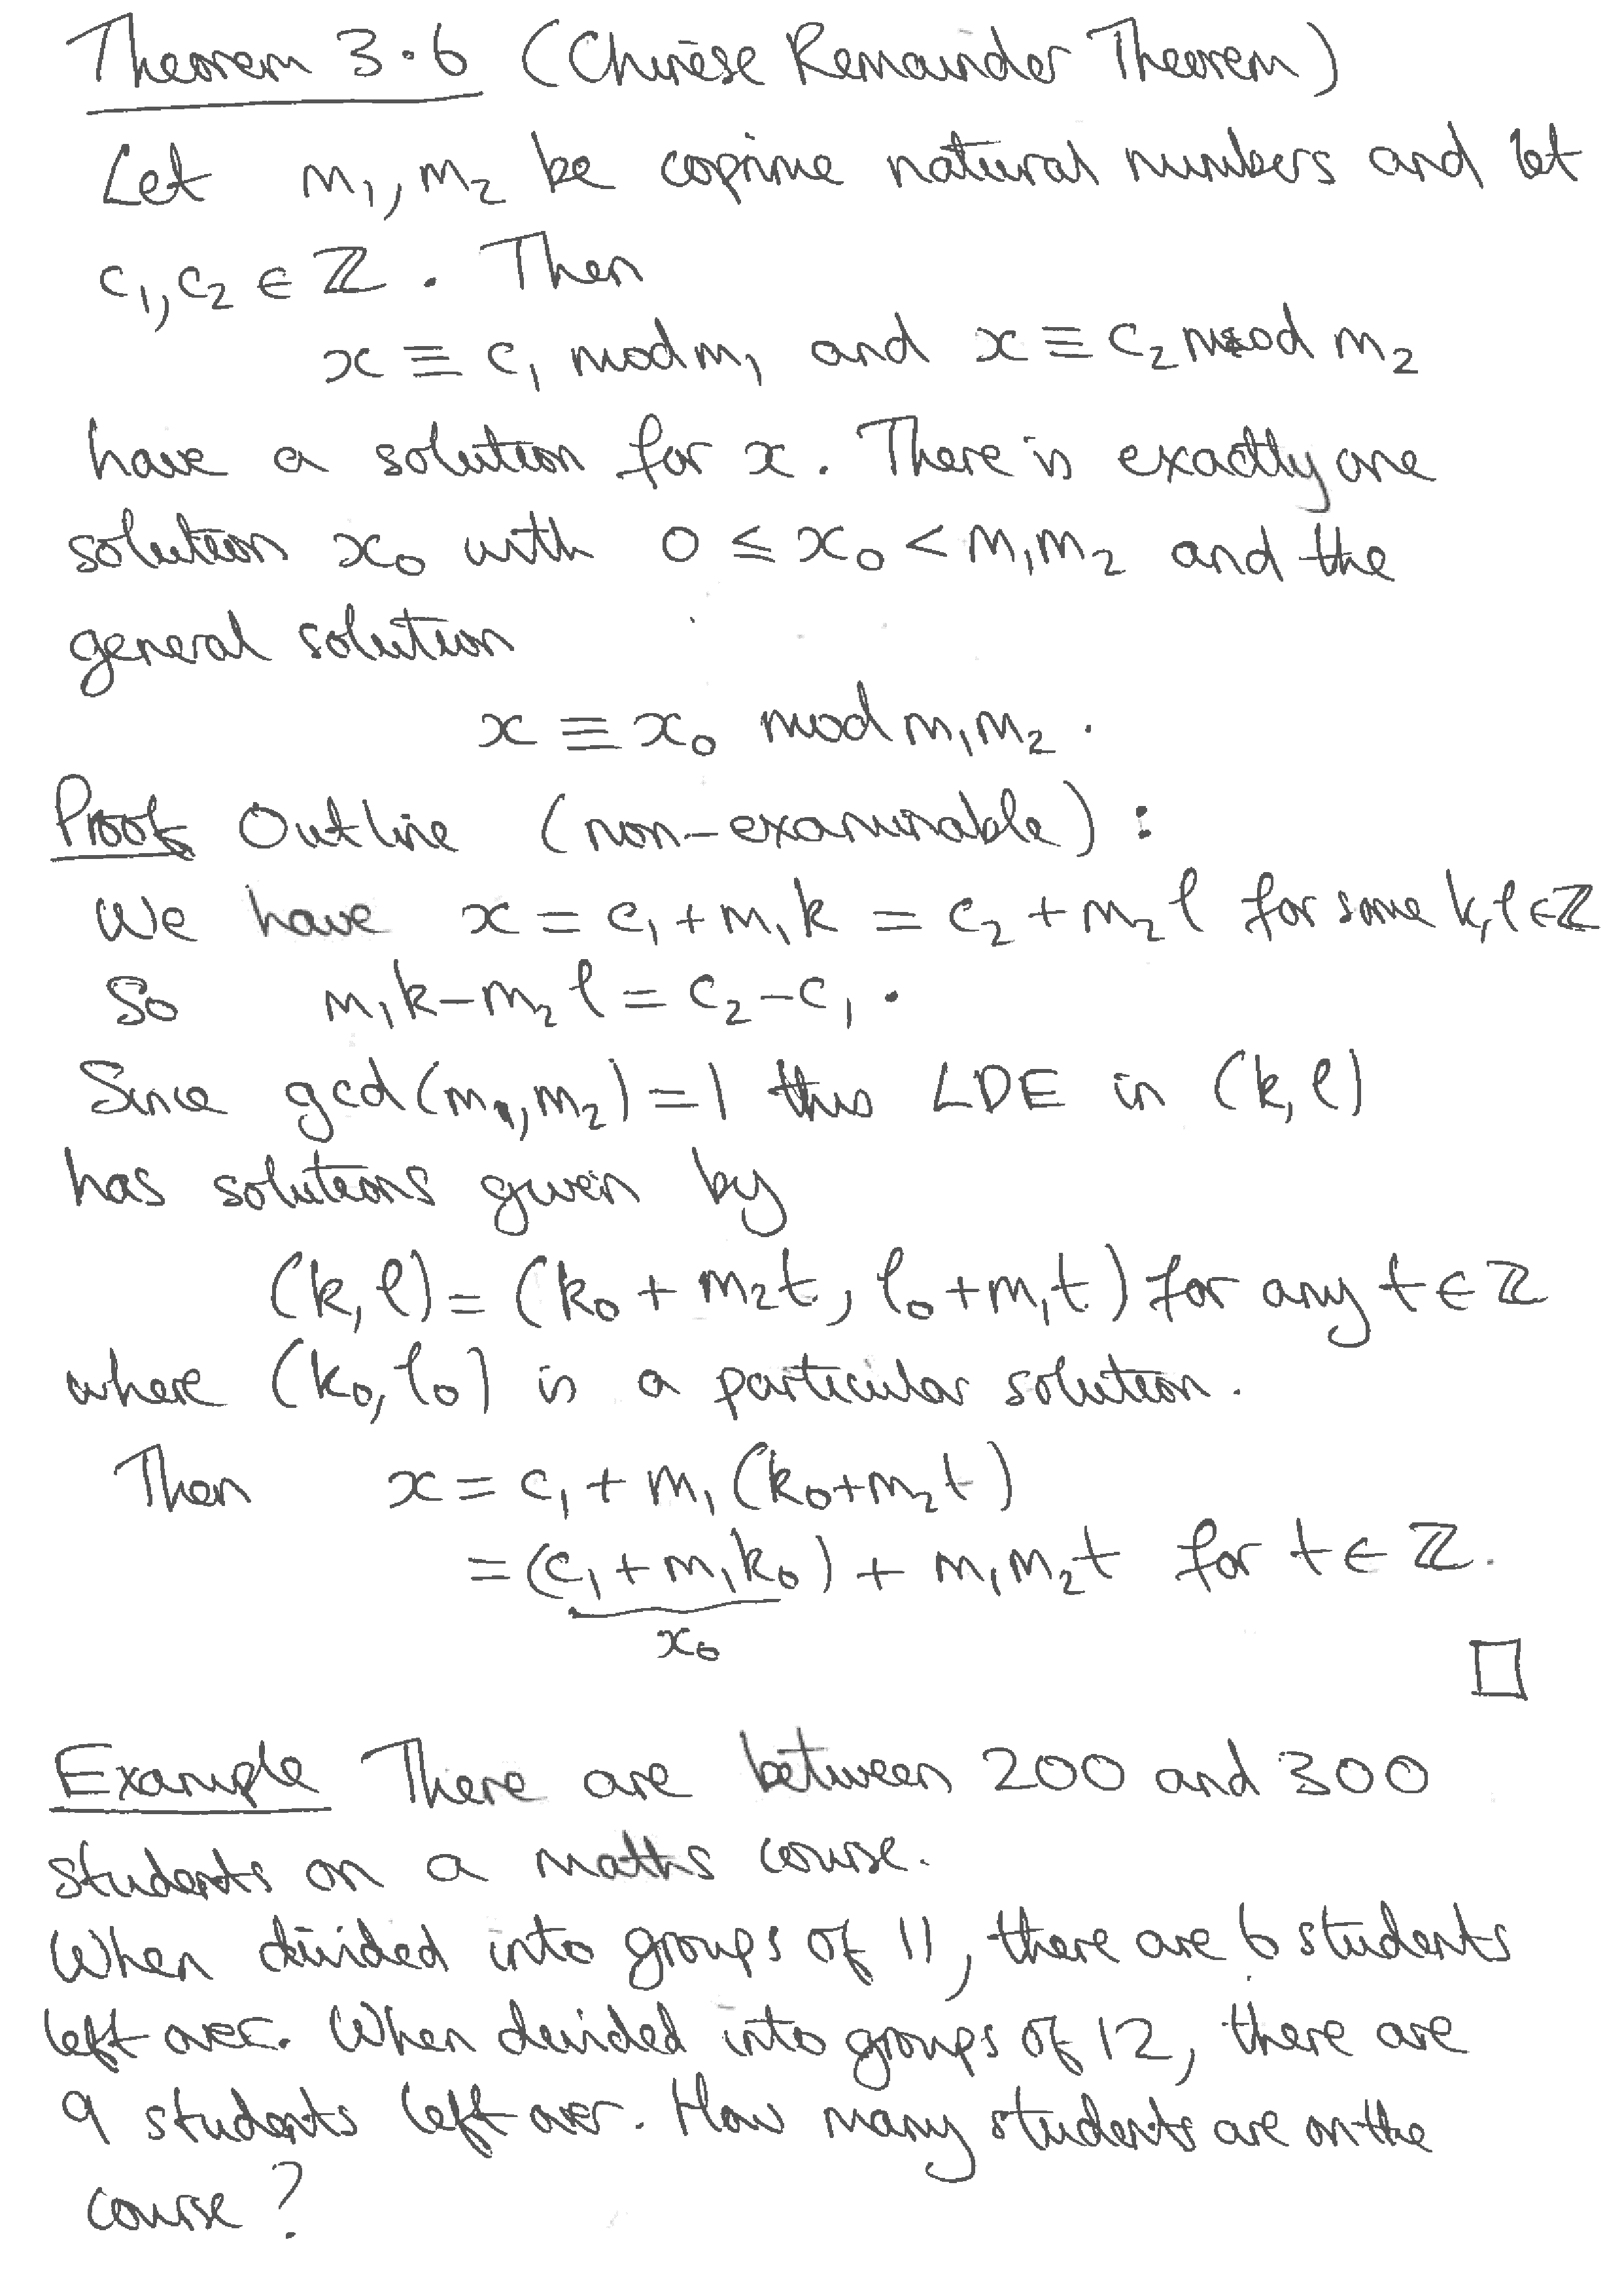 Theorem 3.6 (Chinese Remainder Theorem)
Let m₁, m₂ be coprime natural numbers and let
c₁, c₂ ∈ ℤ. Then
x ≡ c₁ mod m₁ and x ≡ c₂ mod m₂
have a solution for x. There is exactly one
solution x₀ with 0 ≤ x₀ < m₁m₂ and the
general solution
x ≡ x₀ mod m₁m₂.
Proof Outline (non-examinable):
We have x = c₁ + m₁k = c₂ + m₂l for some k, l ∈ ℤ
So m₁k - m₂l = c₂ - c₁.
Since gcd(m₁, m₂) = 1 this LDE in (k, l)
has solutions given by
(k, l) = (k₀ + m₂t, l₀ + m₁t) for any t ∈ ℤ
where (k₀, l₀) is a particular solution.
Then x = c₁ + m₁(k₀ + m₂t)
= (c₁ + m₁k₀) + m₁m₂t for t ∈ ℤ.
x₀
□
Example There are between 200 and 300
students on a maths course.
When divided into groups of 11, there are 6 students
left over. When divided into groups of 12, there are
9 students left over. How many students are on the
course?